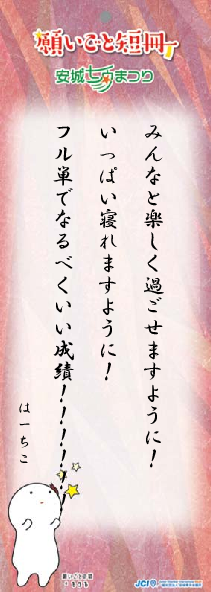 願いごと短冊
安城七夕まつり
みんなと楽しく過ごせますように！
いっぱい寝れますように！
フル単でなるべくいい成績！！！！！
はーちこ
願いごと短冊
JCI